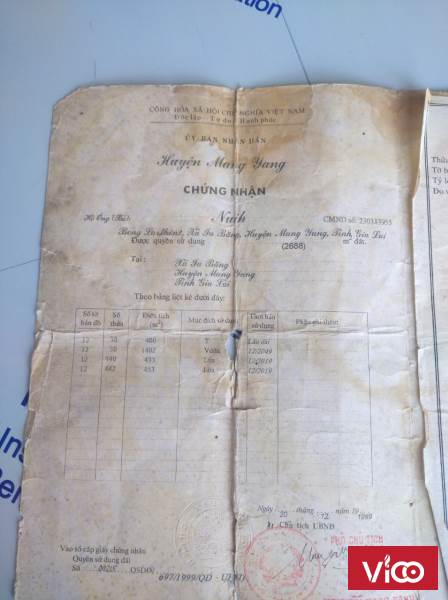 CỘNG HÒA XÃ HỘI CHỦ NGHĨA VIỆT NAM
Độc lập - Tự do - Hạnh phúc
ỦY BAN NHÂN DÂN
Huyện Mang Yang
CHỨNG NHẬN
Hộ Ông (Bà): Nưih CMND số: 230333955
Xã Ia Băng, Huyện Mang Yang, Tỉnh Gia Lai
Được quyền sử dụng (2688) m² đất.
Tại: Xã Ia Băng
Huyện Mang Yang
Tỉnh Gia Lai
Theo bảng liệt kê dưới đây:
Số tờ bản đồ Số thửa Diện tích (m²) Mục đích sử dụng Thời hạn sử dụng Phần ghi thêm
12 30 400 T Lâu dài
12 30 1402 Vườn 12/2049
12 440 433 Lúa 12/2019
12 442 453 Lúa 12/2019
Ngày 20 tháng 12 năm 1999
Chủ tịch UBND
PHÓ CHỦ TỊCH
Vào sổ cấp giấy chứng nhận
Quyền sử dụng đất
Số 00215 QSDĐ/
697/1999/QĐ - UBND
Thửa
Tờ b
Tỷ l
Đo v
Vico